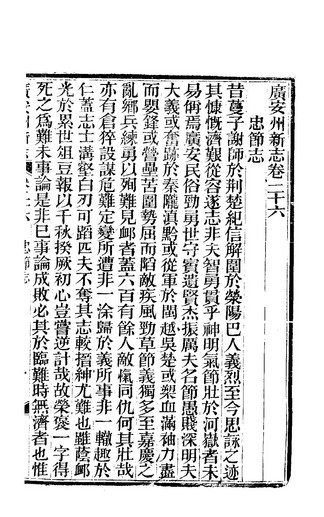 廣安州新志卷二十六
忠節志
昔蔓子謝師於荆楚紀信解圍於滎陽巴人義烈至今思詠之迹
其慷慨濟艱從容遂志非夫智勇貫乎神明氣節壯於河嶽者未
易侔焉廣安民俗勁勇世守賨遺賢杰振厲夫名節愚賤深明夫
大義或奮跡於秦隴滇黔或從軍於閩越吳楚或槊血滿袖力盡
而嬰鋒或營壘苦圍勢屈而蹈敵疾風勁草節義獨多至嘉慶之
亂鄉兵練勇以殉難見衈者蓋六百有餘人敵愾同仇何其壯哉
亦有倉猝設謀危難定變所遭非一塗歸於義所事非一轍趣於
仁蓋志士溝壑白刃可蹈匹夫不奪其志較搢紳尤難也雖蔭衈
光於累世俎豆報以千秋揆厥初心豈嘗逆計哉故榮褒一字得
死之爲難未事論是非已事論成敗必其於臨難時無濟者也惟